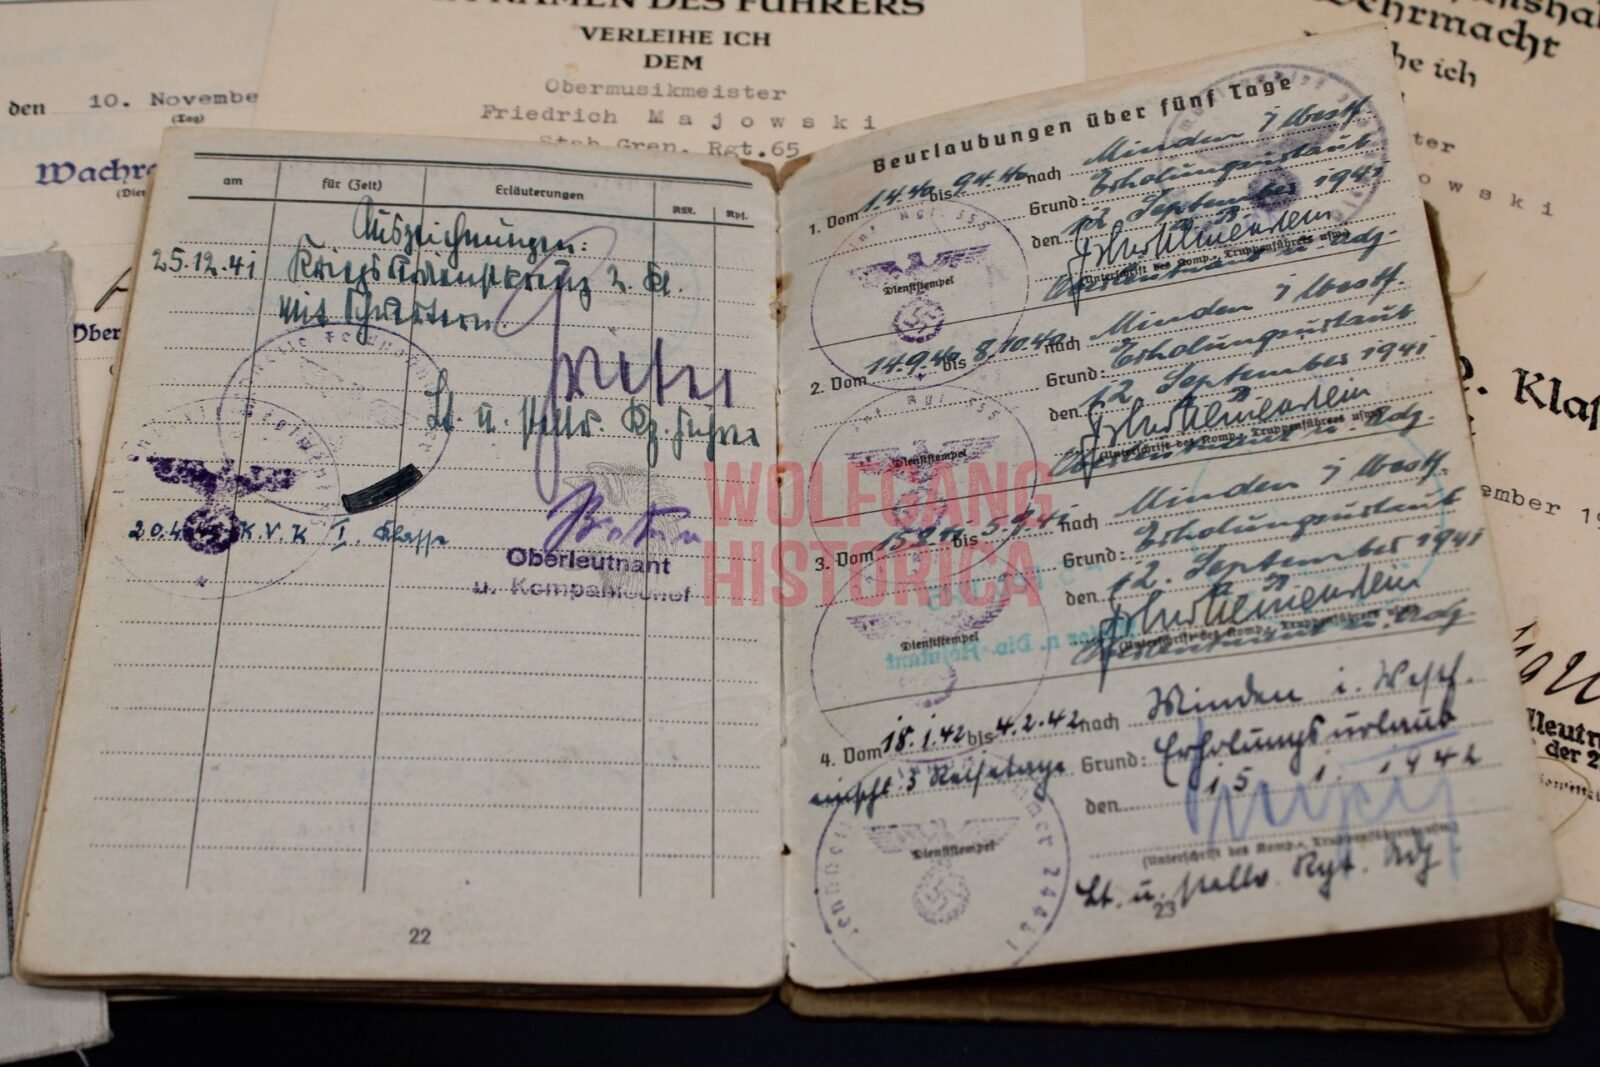 NAMEN DES FÜHRERS
VERLEIHE ICH
DEM
Obermusikmeister
Friedrich Majowski
Stab Gren. Rgt.65
den 10. Novembe
(Tag)
Wachr
(Dien
Ober
ehrmacht
he ich
ter
owski
. Klas
ember 19
der 2
am
für (Zeit)
Erläuterungen
RM.
Rpf.
Auszeichnungen:
25.12.41 Kriegsverdienstkreuz 2. Kl.
mit Schwertern.
Lt. u. stellv. Kp. Führer
20.4. K.V.K I. Klasse
Oberleutnant
u. Kompaniechef
22
Beurlaubungen über fünf Tage
1. Vom 1.4.40 bis 9.4.40 nach Minden i Westf.
Grund: Erholungsurlaub
den 12. September 1941
(Unterschrift des Komp.-, Truppenführers usw.)
Oberleutnant u. Adj.
Dienststempel
2. Vom 14.9.40 bis 8.10.40 nach Minden i Westf.
Grund: Erholungsurlaub
den 12 September 1941
(Unterschrift des Komp.-, Truppenführers usw.)
Oberleutnant u. Adj.
Dienststempel
3. Vom bis nach Minden i Westf.
Grund: Erholungsurlaub
den 12. September 1941
(Unterschrift des Komp.-, Truppenführers usw.)
Oberleutnant u. Adj
Dienststempel
4. Vom 18.1.42 bis 4.2.42 nach Minden i. Westf.
einschl. 3 Reisetage Grund: Erholungsurlaub
den 15. 1. 1942
(Unterschrift des Komp.-, Truppenführers usw.)
Lt. u. stellv. Rgt. Adj
Dienststempel
23
WOLFGANG
HISTORICA